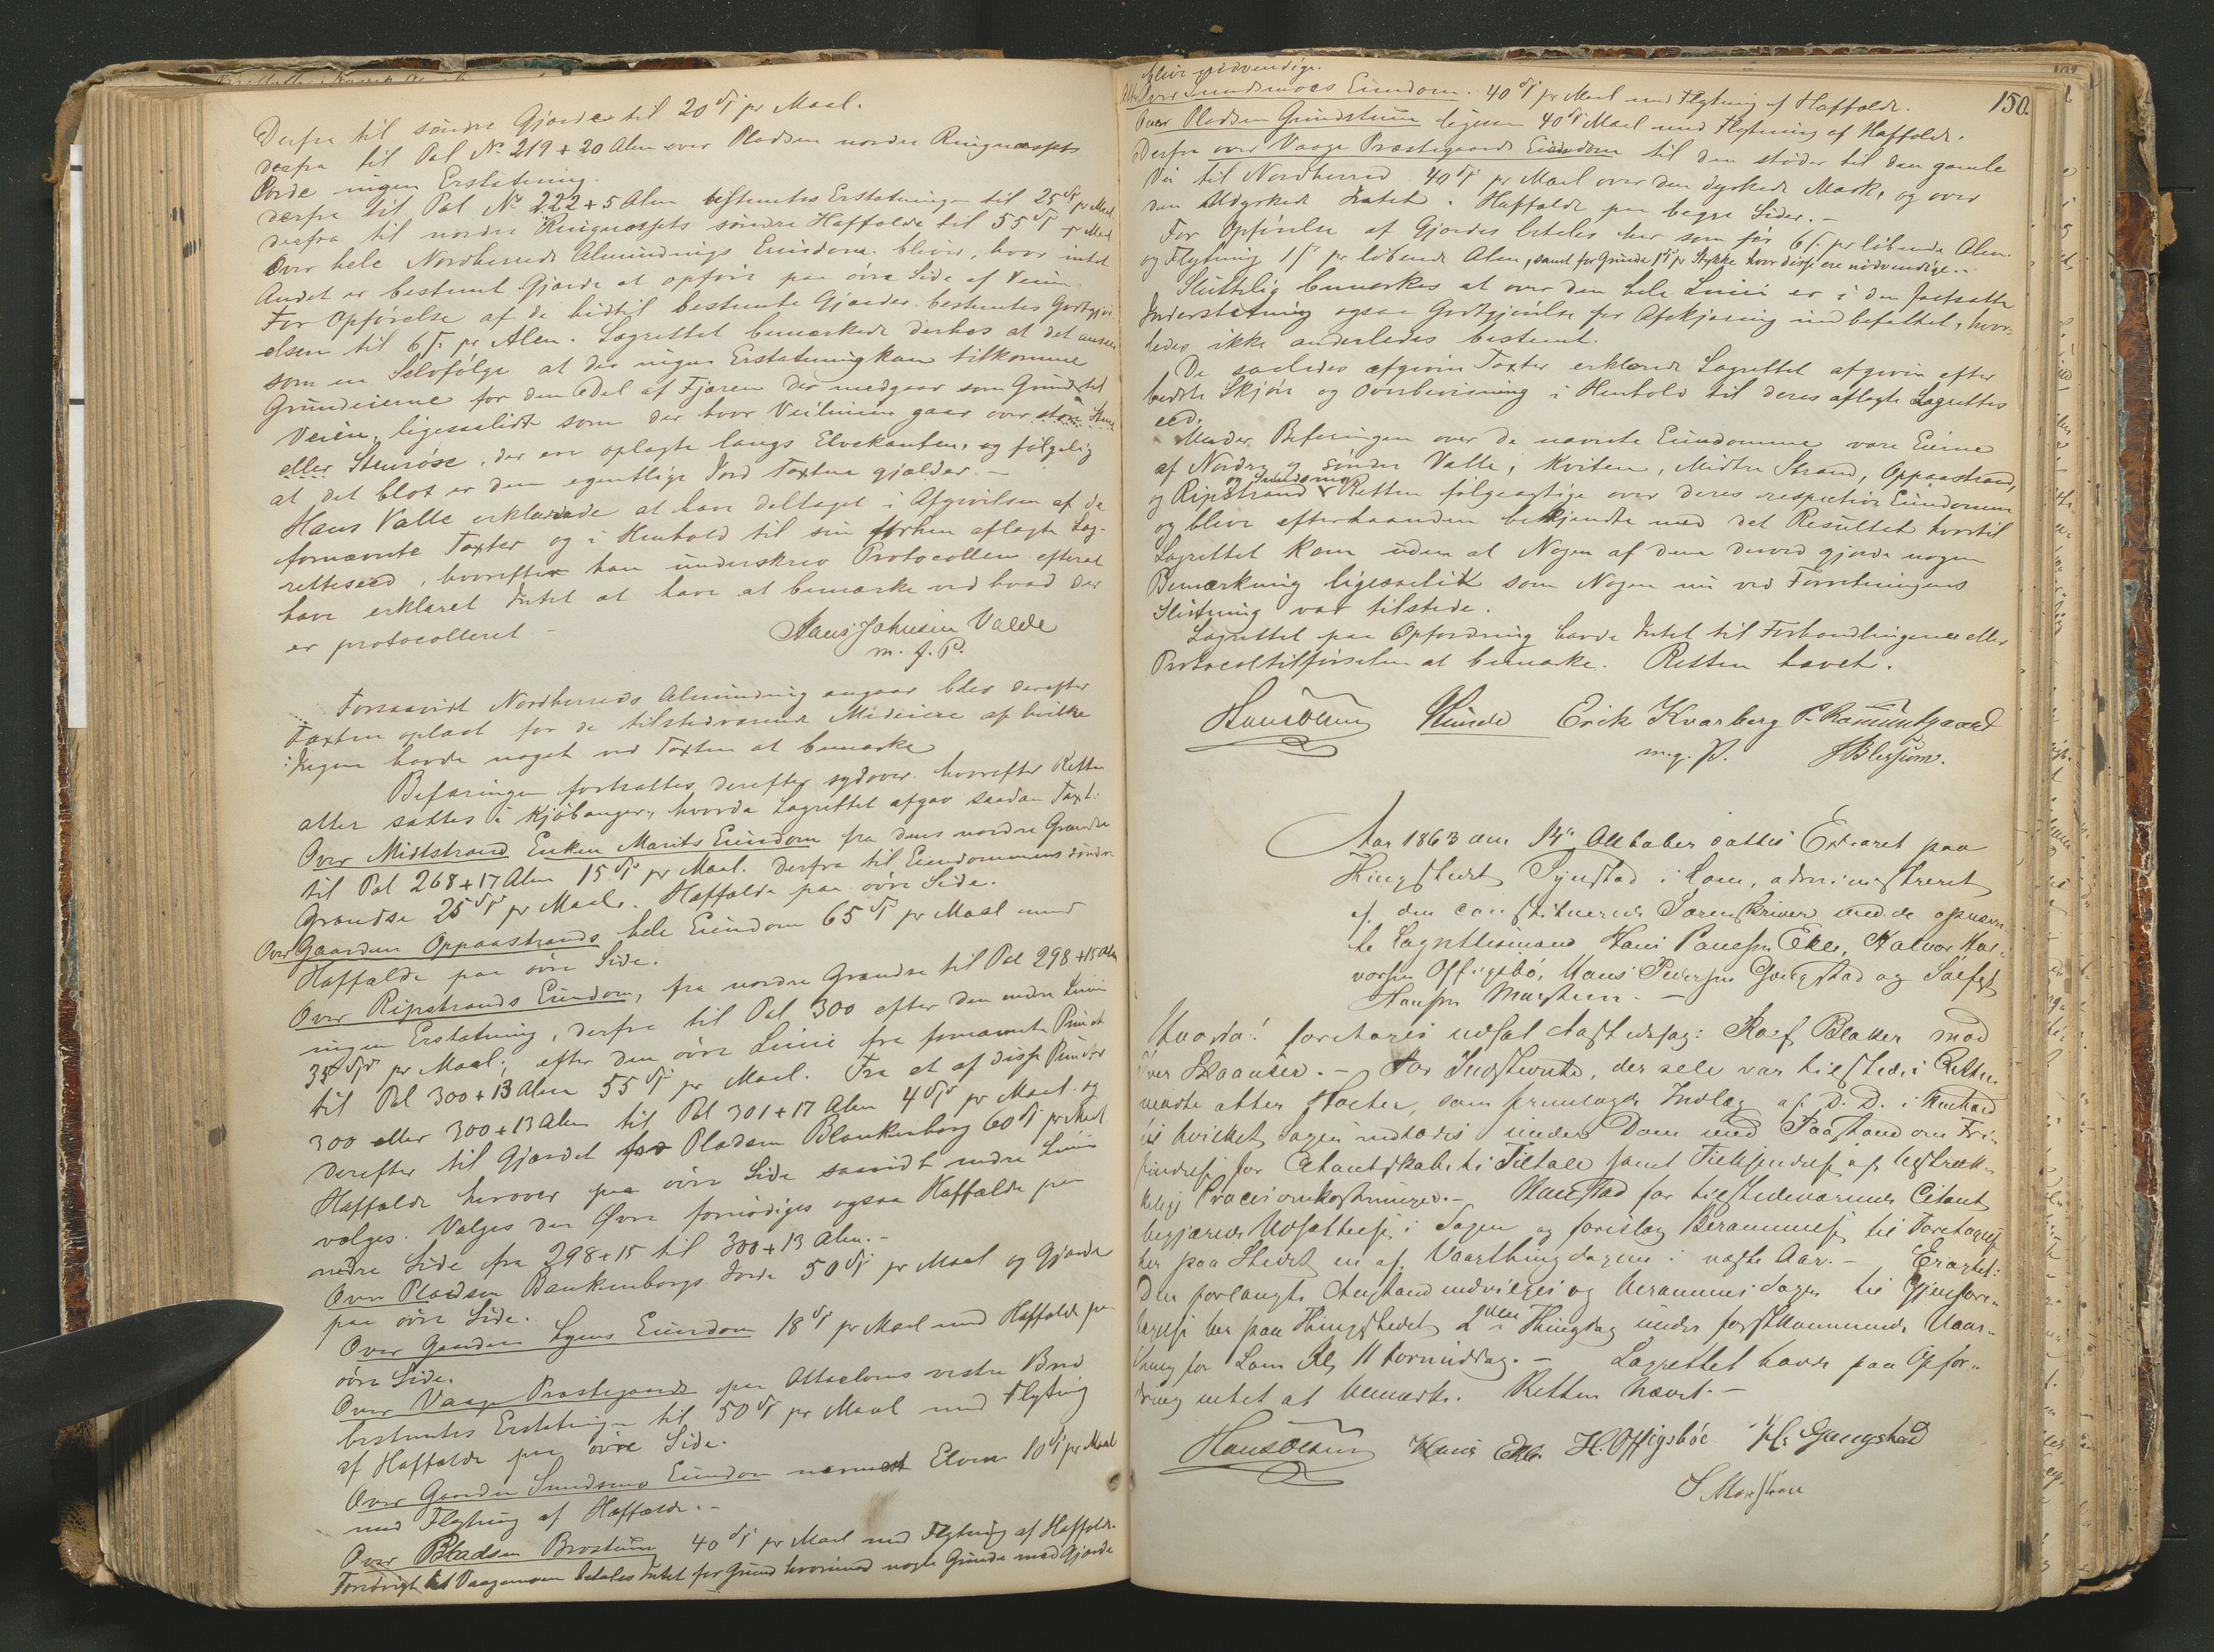 Derfra til søndre Gjærde til 20 Spd pr Maal.
derfra til Pæl No 219 + 20 Alen over Pladsen nordre Ringnæssets
Jorde ingen Erstatning.
derfra til Pæl No 222 + 5 Alen bestemtes Erstatningen til 25 Spd pr Maal
derfra til nordre Ringnæssets søndre Haffælde til 55 Spd pr Maal
Over hele Nordherreds Almindings Eiendom bliver, hvor intet
Andet er bestemt Gjærde at opføre paa øvre Side af Veien.
For Opførelse af de hidtil bestemte Gjærder bestemtes Godtgjør-
elsen til 6 s. pr Alen. Lagrettet bemærkede derhos at det ansees
som en Selvfølge at der ingen Erstatning kan tilkomme
Grundeierne for den Del af Fjæren der medgaar som Grund til
Veien, ligesaalidt som der hvor Veilinien gaar over store Stene
eller Stenrøse, der ere oplagte langs Elvekanten, og følgelig
at det blot er den egentlige Jord Taxten gjælder. –
Hans Valle erklærede at have deltaget i Afgivelsen af de
fornævnte Taxter og i Henhold til sin forhen aflagte Lag-
retteseed, hvorefter han underskrev Protocollen efterat
have erklæret Intet at have at bemærke ved hvad der
er protocolleret –
Hans Johnsen Valde
m. f. P.
Forsaavidt Nordherreds Alminding angaar blev derefter
Taxten oplæst for de tilstedværende Medeiere af hvilke
Ingen havde noget ved Taxten at bemærke
Befaringen fortsattes derefter sydover hvorefter Retten
atter sattes i Kjøbanger, hvorda Lagrettet afgav saadan Taxt:
Over Midtstrand Enken Marits Eiendom fra dens nordre Grændse
til Pæl 268 + 17 Alen 15 Spd pr Maal. derfra til Eiendommens søndre
Grændse 25 Spd pr Maal. Haffælde paa øvre Side.
Over Gaarden Oppaastrands hele Eiendom 65 Spd pr Maal med
Haffælde paa øvre Side.
Over Ripstrands Eiendom, fra nordre Grændse til Pæl 298 + 15 Alen
ingen Erstatning, derfra til Pæl 300 efter den nedre Linie
35 Spd pr Maal, efter den øvre Linie fra fornævnte Punct
til Pæl 300 + 13 Alen 55 Spd pr Maal. Fra et af disse Puncter
300 eller 300 + 13 Alen til Pæl 301 + 17 Alen 4 Spd pr Maal. og
derefter til Gjærdet for Pladsen Blankenborg 60 Spd pr Maal
Haffælde herover paa øvre Side saavidt nedre Linie
vælges. Vælges den Øvre fornødiges ogsaa Haffælde paa
nedre Side fra 298 + 15 til 300 + 13 Alen. –
Over Pladsen Bankenborgs Jorde 50 Spd pr Maal og Gjærde
paa øvre Side.
Over Gaarden Sygens Eiendom 18 Spd pr Maal med Haffælde paa
øvre Side.
Over Vaage Præstegaards paa Ottaelvens vestre Bred
bestemtes Erstatningen til 50 Spd pr Maal med Flytning
af Haffælde paa øvre Side.
Over Gaarden Sundsmo Eiendom nærmest Elven 10 Spd pr Maal
med Flytning af Haffælde. –
Over Pladsen Brostuen 40 Spd pr Maal med Flytning af Haffælde.
Forøvrigt til Vaagemoen betales Intet for Grund hvorimod nogle Grinde med Gjærde
150.
blive nødvendige.
Over Sundsmoes Eiendom. 40 Spd pr Maal med Flytning af Haffælde.
Over Pladsen Grindstuen ligesaa 40 Spd Maal med Flytning af Haffælde.
Derfra over Vaage Præstegaards Eiendom til den støder til den gamle
Vei til Nordherred 40 Spd pr Maal over den dyrkede Mark, og over
den Udyrkede Intet. Haffælde paa begge Sider. –
For Opførelse af Gjærdes betales her som før 6 s. pr løbende Alen.
og Flytning 1 s pr løbende Alen, samt for Grinde 1 Spd pr Stykke hvor disse ere nødvendige. –
Sluttelig bemærkes at over den hele Linie er i den fastsatte
Jorderstatning ogsaa Godtgjørelse for Afskjæring indbefattet, hvor-
ledes ikke anderledes bestemt.
De saaledes afgivne Taxter erklærede Lagrettet afgivne efter
bedste Skjøn og Overbevisning i Henhold til deres aflagte Lagrettes
eed.
Under Befaringen over de nævnte Eiendomme vare Eierne
af Nordre og søndre Valle, Kviten, Midtre Strand, Oppaastrand,
og Sundsmo
og Ripstrand Retten følgeagtige over deres respective Eiendomme
og bleve efterhaanden bekjendte med det Resultet hvortil
Lagrettet kom uden at Nogen af dem derved gjorde nogen
Bemærkning ligesaalidt som Nogen nu ved Forretningens
Slutning var tilstede.
Lagrettet paa Opfordring havde Intet til Forhandlingerne eller
Protocoltilførselen at bemærke. Retten hævet.
Erik Kvarberg
m. g. P.
J Blessum.
Aar 1863 den 14de Oktober sattes Extraret paa
Thingstedet Synstad i Lom, administreret
af den constituerede Sorenskriver med de opnævn-
te Lagrettesmænd Hans Paulsen Ekle, Halvor Hal-
vorsen Offigsbø, Hans Pedersen Gangstad og Solfest
Hansen Marsteen. –
Hvorda! foretoges udsat Aastedssag: Roef Blakar mod
Iver Skaanser. – For Indstevnte, der selv var tilstede i Retten
mødte atter Holter, som fremlagde Indlæg af D. D. i Henhold
til hvilket Sagen indlodes under Dom med Paastand om Fri-
findelse for Citantskabets Tiltale samt Tilkjendelse af tilstræk-
kelige Procesomkostninger. – Hanstad for tilstedeværende Citant
begjærede Udsættelse i Sagen og foreslog Berammelse til Foretagelse
her paa Stedet en af Vaarthingdagene i næste Aar. – Eragtet:
Den forlangte Anstand indvilges og berammes Sagen til Gjenfore-
tagelse her paa Thingstedet 2den Thingdag under førstkommende Vaar-
thing for Lom Kl. 11 Formiddag. – Lagrettet havde paa Opfor-
dring intet at bemærke. Retten hævet. –
Hans Ekle. H. Offigsbøe H. Gangstad
S. Marsteen